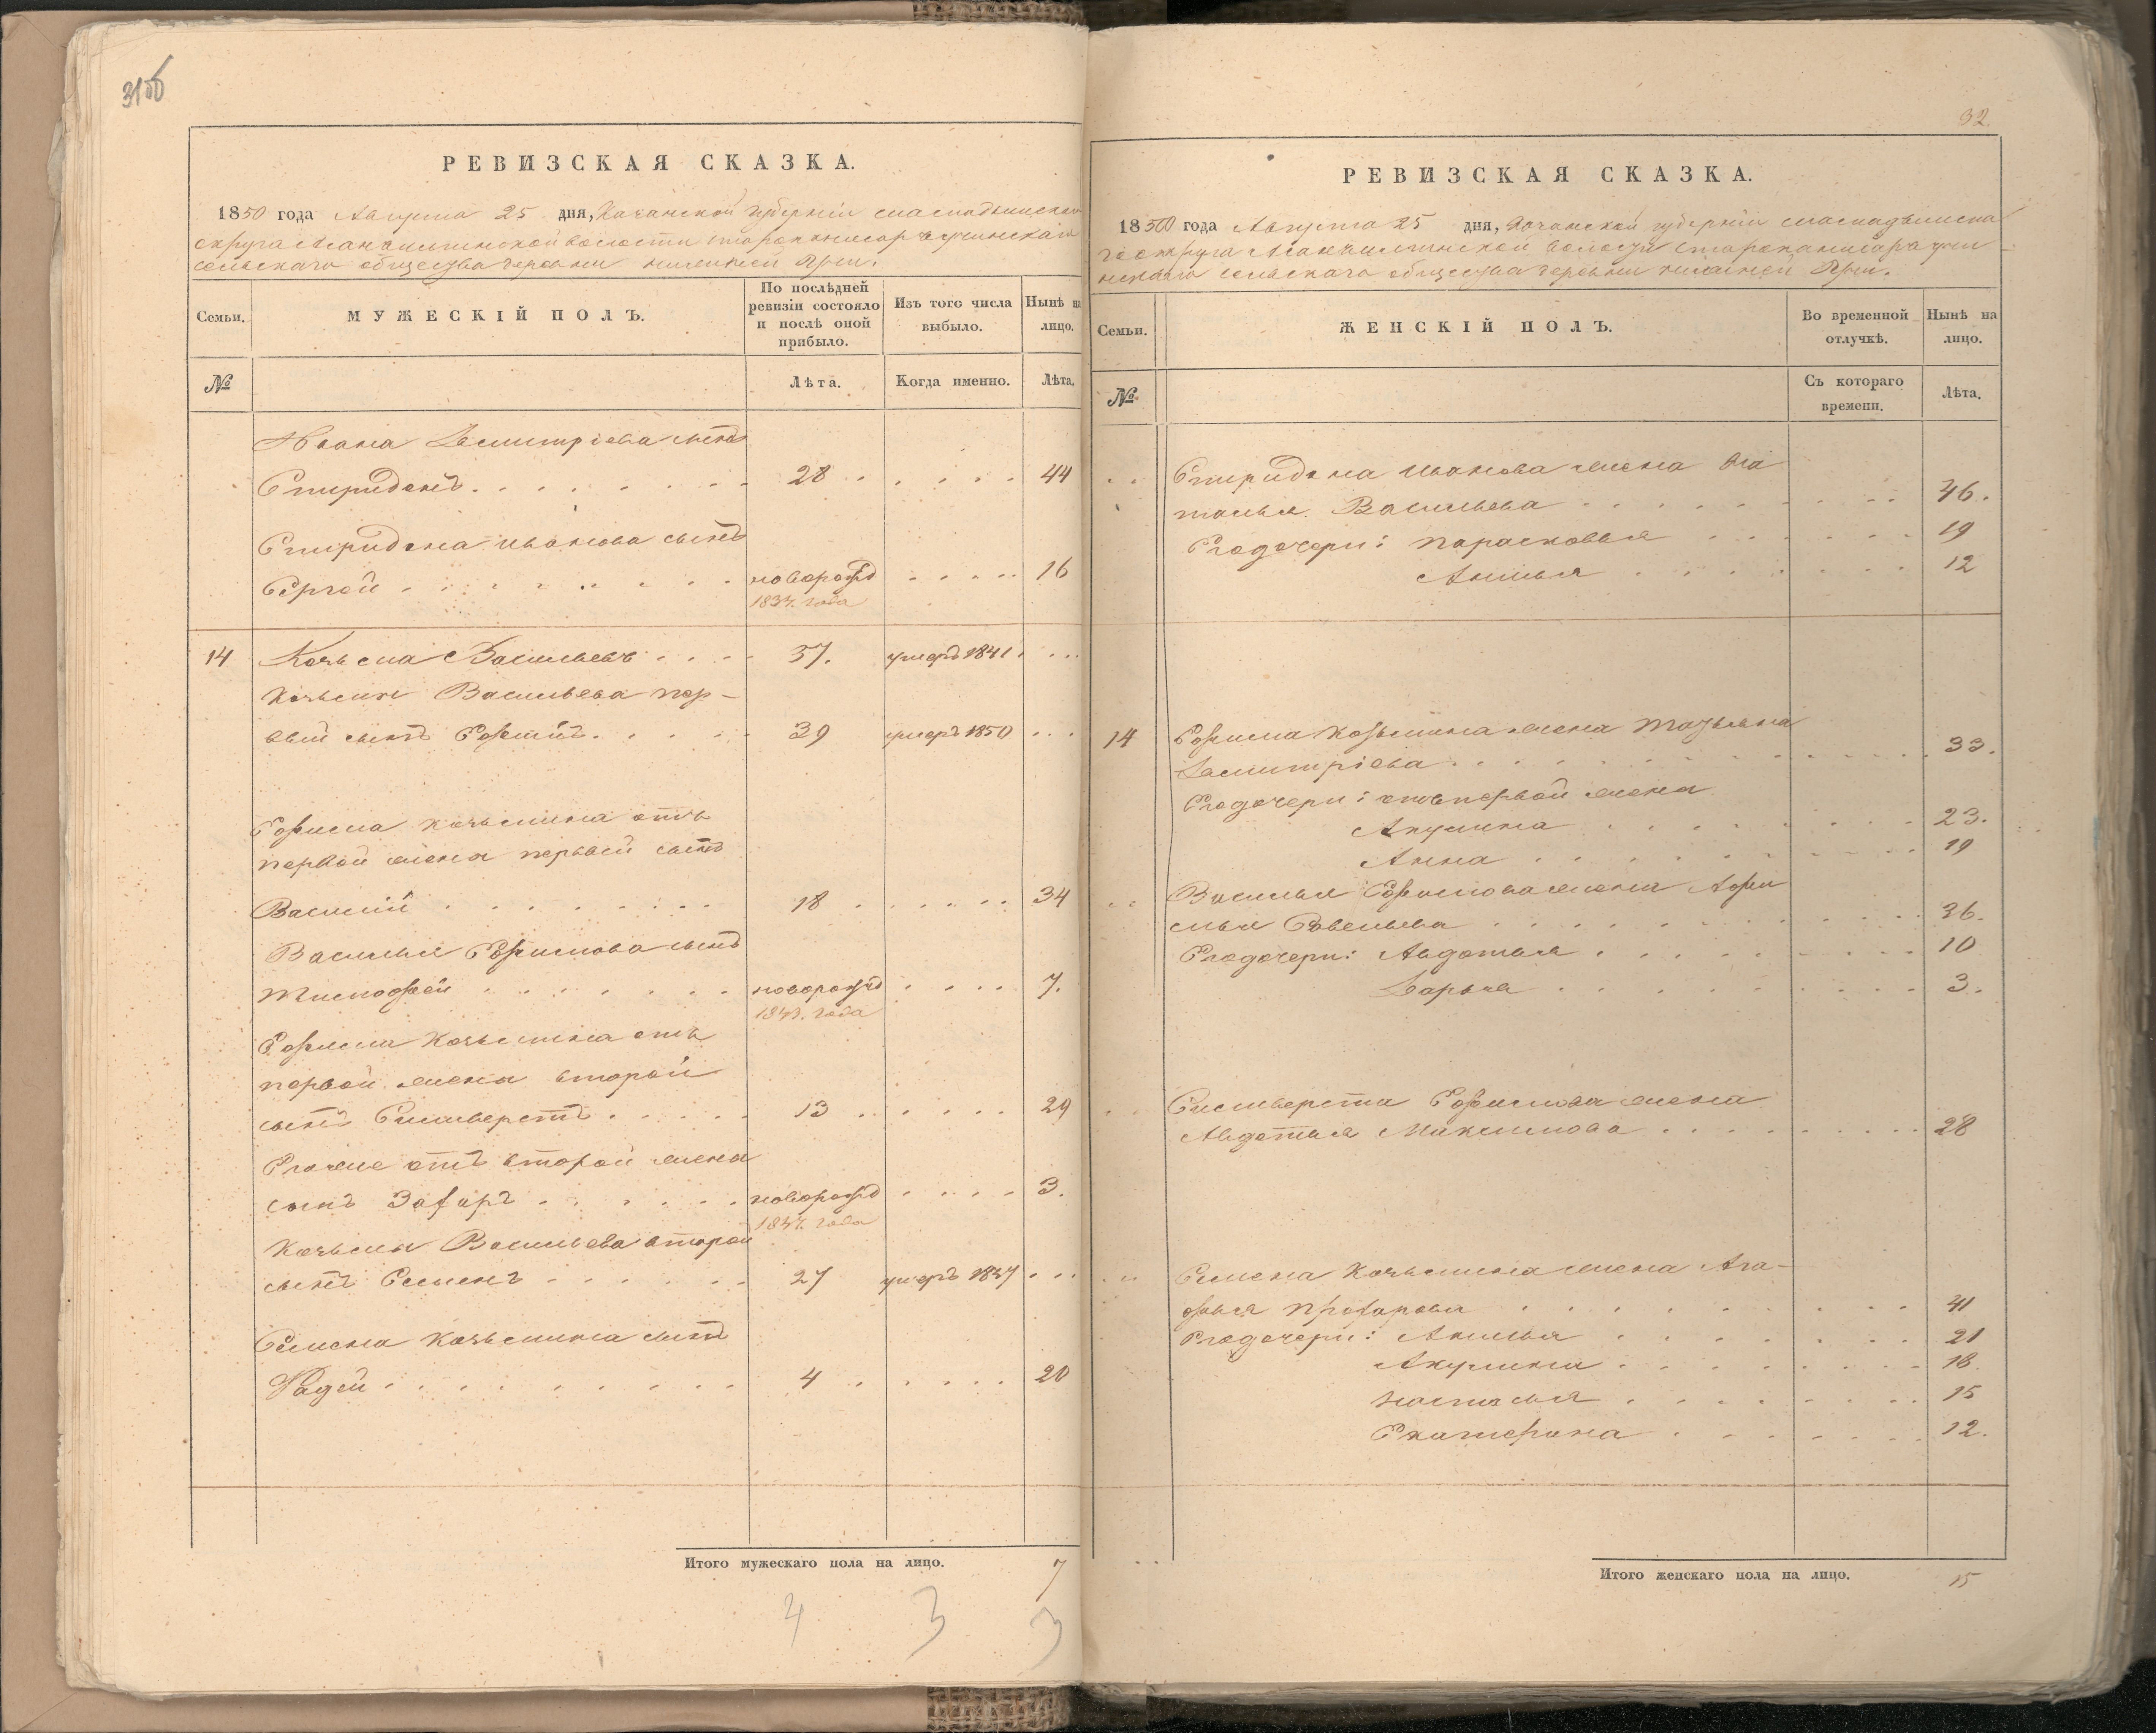 31об
РЕВИЗСКАЯ СКАЗКА.
1850 года Августа 25 дня, Казанской губерніи
округа волости
сельскаго общества деревни
Семьи.
МУЖЕСКІЙ ПОЛЪ.
По послѣдней ревизіи состояло и послѣ оной прибыло.
Изъ того числа выбыло.
Нынѣ на лицо.
№
Лѣта.
Когда именно.
Лѣта.
Ивана Демитріева сынъ
Спиридонъ 28 44
Спиридона Иванова сынъ
Сергей новорожд 16
1834. года
14 Козьма Васильевъ 57. умеръ 1841
Козьмы Васильева пер-
вый сынъ Ефимъ 39 умеръ 1850
Ефима Козьмина отъ
первой жены первый сынъ
Василій 18 34
Василья Ефимова сынъ
Тимофей новорожд 7.
года
Ефима Козьмина отъ
первой жены второй
сынъ Сильверстъ 13 29
Егоже отъ второй жены
сынъ Захаръ новорожд 3.
1847. года
Козьмы Васильева второй
сынъ Семенъ 27 умеръ
Семена Козьмина сынъ
Фадей 4 20
Итого мужескаго пола на лицо. 7
4 3 3
32.
РЕВИЗСКАЯ СКАЗКА.
1850 года Августа 25 дня, Казанской губерніи
округа волости
сельскаго общества деревни
Семьи.
ЖЕНСКІЙ ПОЛЪ.
Во временной отлучкѣ.
Нынѣ на лицо.
№
Съ котораго времени.
Лѣта.
Спиридона Иванова жена На
талья Васильева 46.
Егодочери: Парасковья 19
12
14 Ефима Козьмина жена Татьяна
Демитріева 33.
Егодочери: отъ первой жены
Акулина 23.
Анна 19
Василья Ефимова жена Афи
мья Савельева 36.
Егодочери: Авдотья 10
Дарья 3.
Сильверста Ефимова жена
Авдотья Максимова 28
Семена Козьмина жена Ага-
фья 41
Егодочери: 21
Акулина 18.
Настасья 15
Екатерина 12.
Итого женскаго пола на лицо. 15